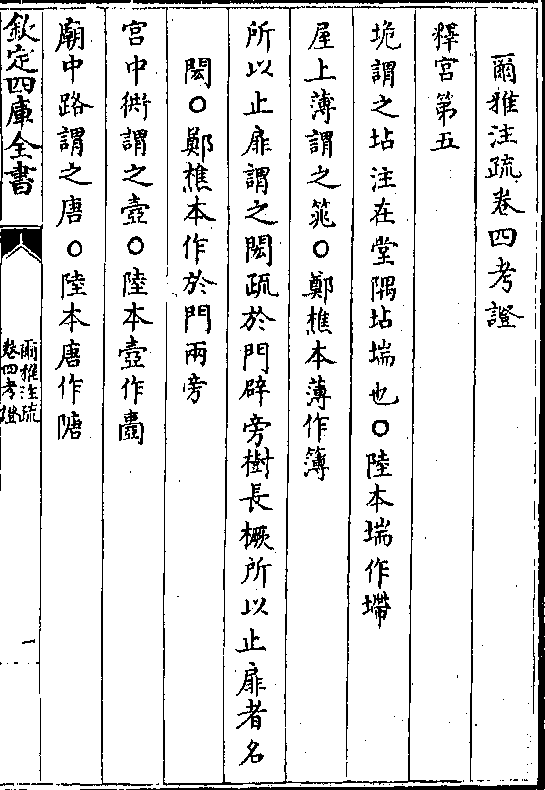 爾雅注疏卷四考證
釋宮第五
垝謂之坫注在堂隅坫㙐也○陸本㙐作墆
屋上薄謂之筄○鄭樵本薄作簿
所以止扉謂之閎疏於門辟旁樹長橛所以止扉者名
閎○鄭樵本作於門兩旁
宮中衖謂之壼○陸本壼作𡈩
廟中路謂之唐○陸本唐作隚
欽定四庫全書
爾雅注疏
卷四考證
一